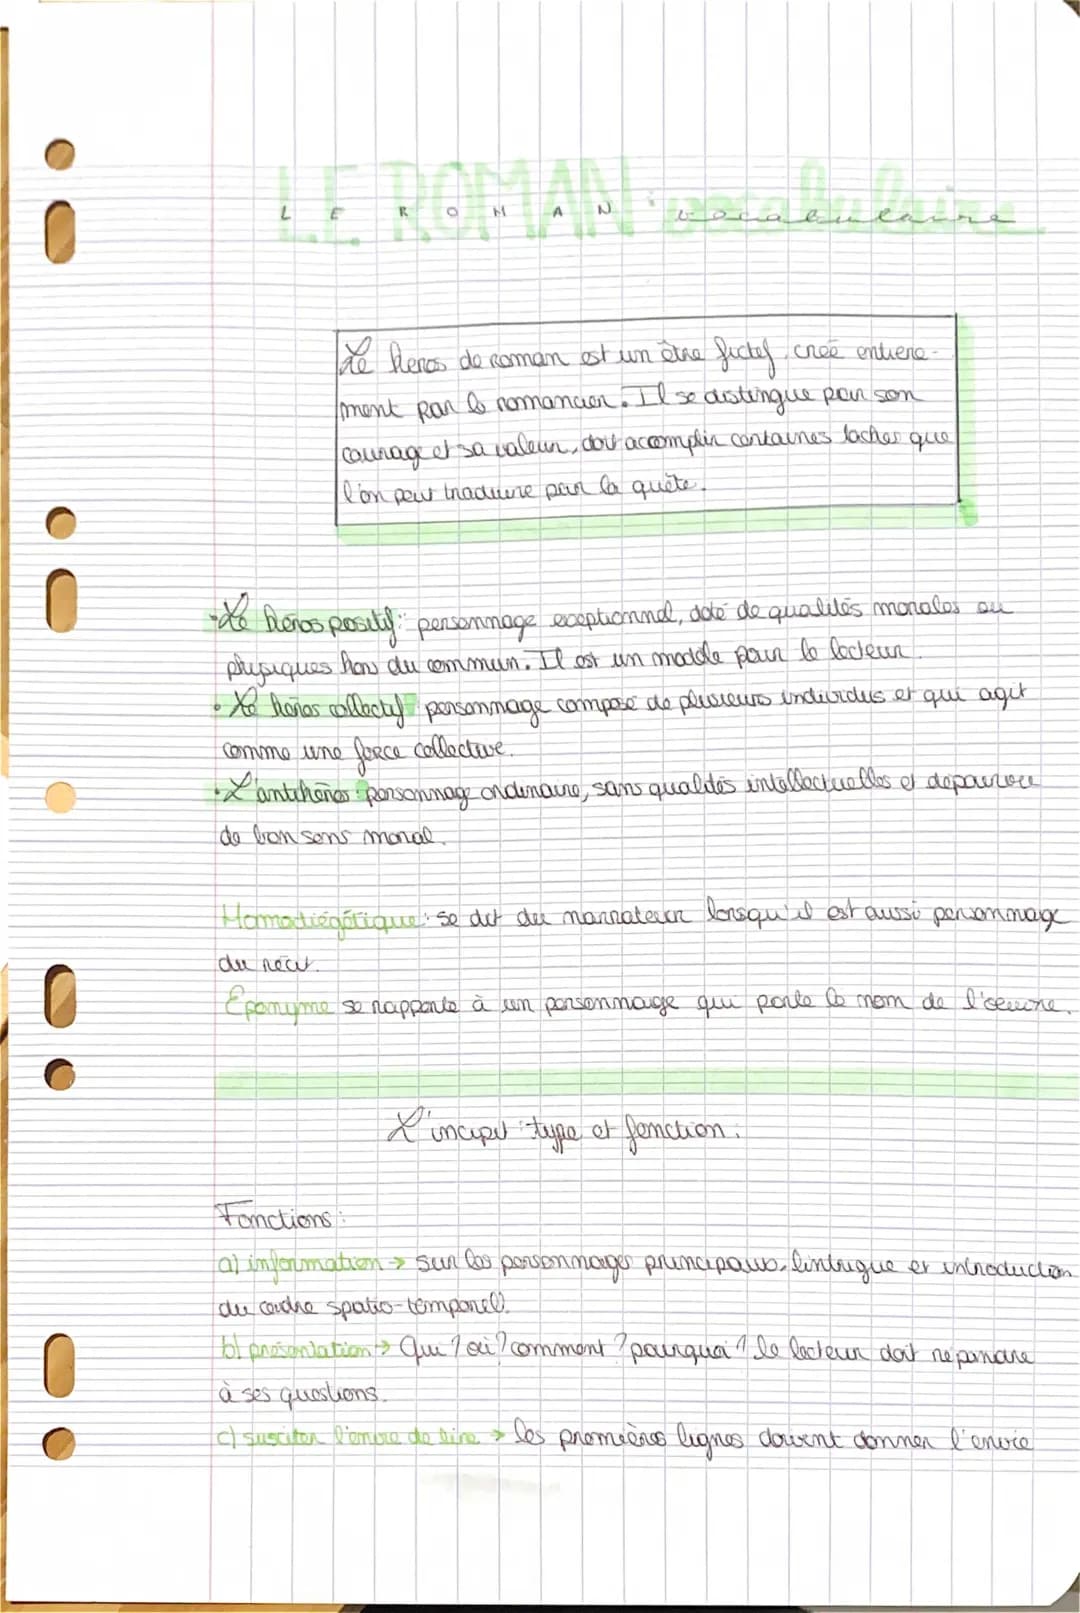 LE ROMAN : vocabulaire
Le héros de roman est un être fictif, créé entière-
ment par le romancier. Il se distingue par son
courage et sa valeur, doit accomplir certaines taches que
l'on peut traduire par la quête.
• Le héros positif : personnage exceptionnel, doté de qualités morales ou
physiques hors du commun. Il est un modèle pour le lecteur.
• Le héros collectif : personnage composé de plusieurs individus et qui agit
comme une force collective.
• L'antihéros : personnage ordinaire, sans qualités intellectuelles et dépourvu
de bon sens moral.
Homodiégétique : se dit du narrateur lorsqu'il est aussi personnage
du récit.
Eponyme se rapporte à un personnage qui porte le nom de l'oeuvre.
L'incipit : type et fonction :
Fonctions :
a) information → sur les personnages principaux, l'intrigue et introduction
du cadre spatio-temporel.
b) présentation → Qui ? où ? comment ? pourquoi ? le lecteur doit répondre
à ses questions.
c) susciter l'envie de lire → les premières lignes doivent donner l'envie